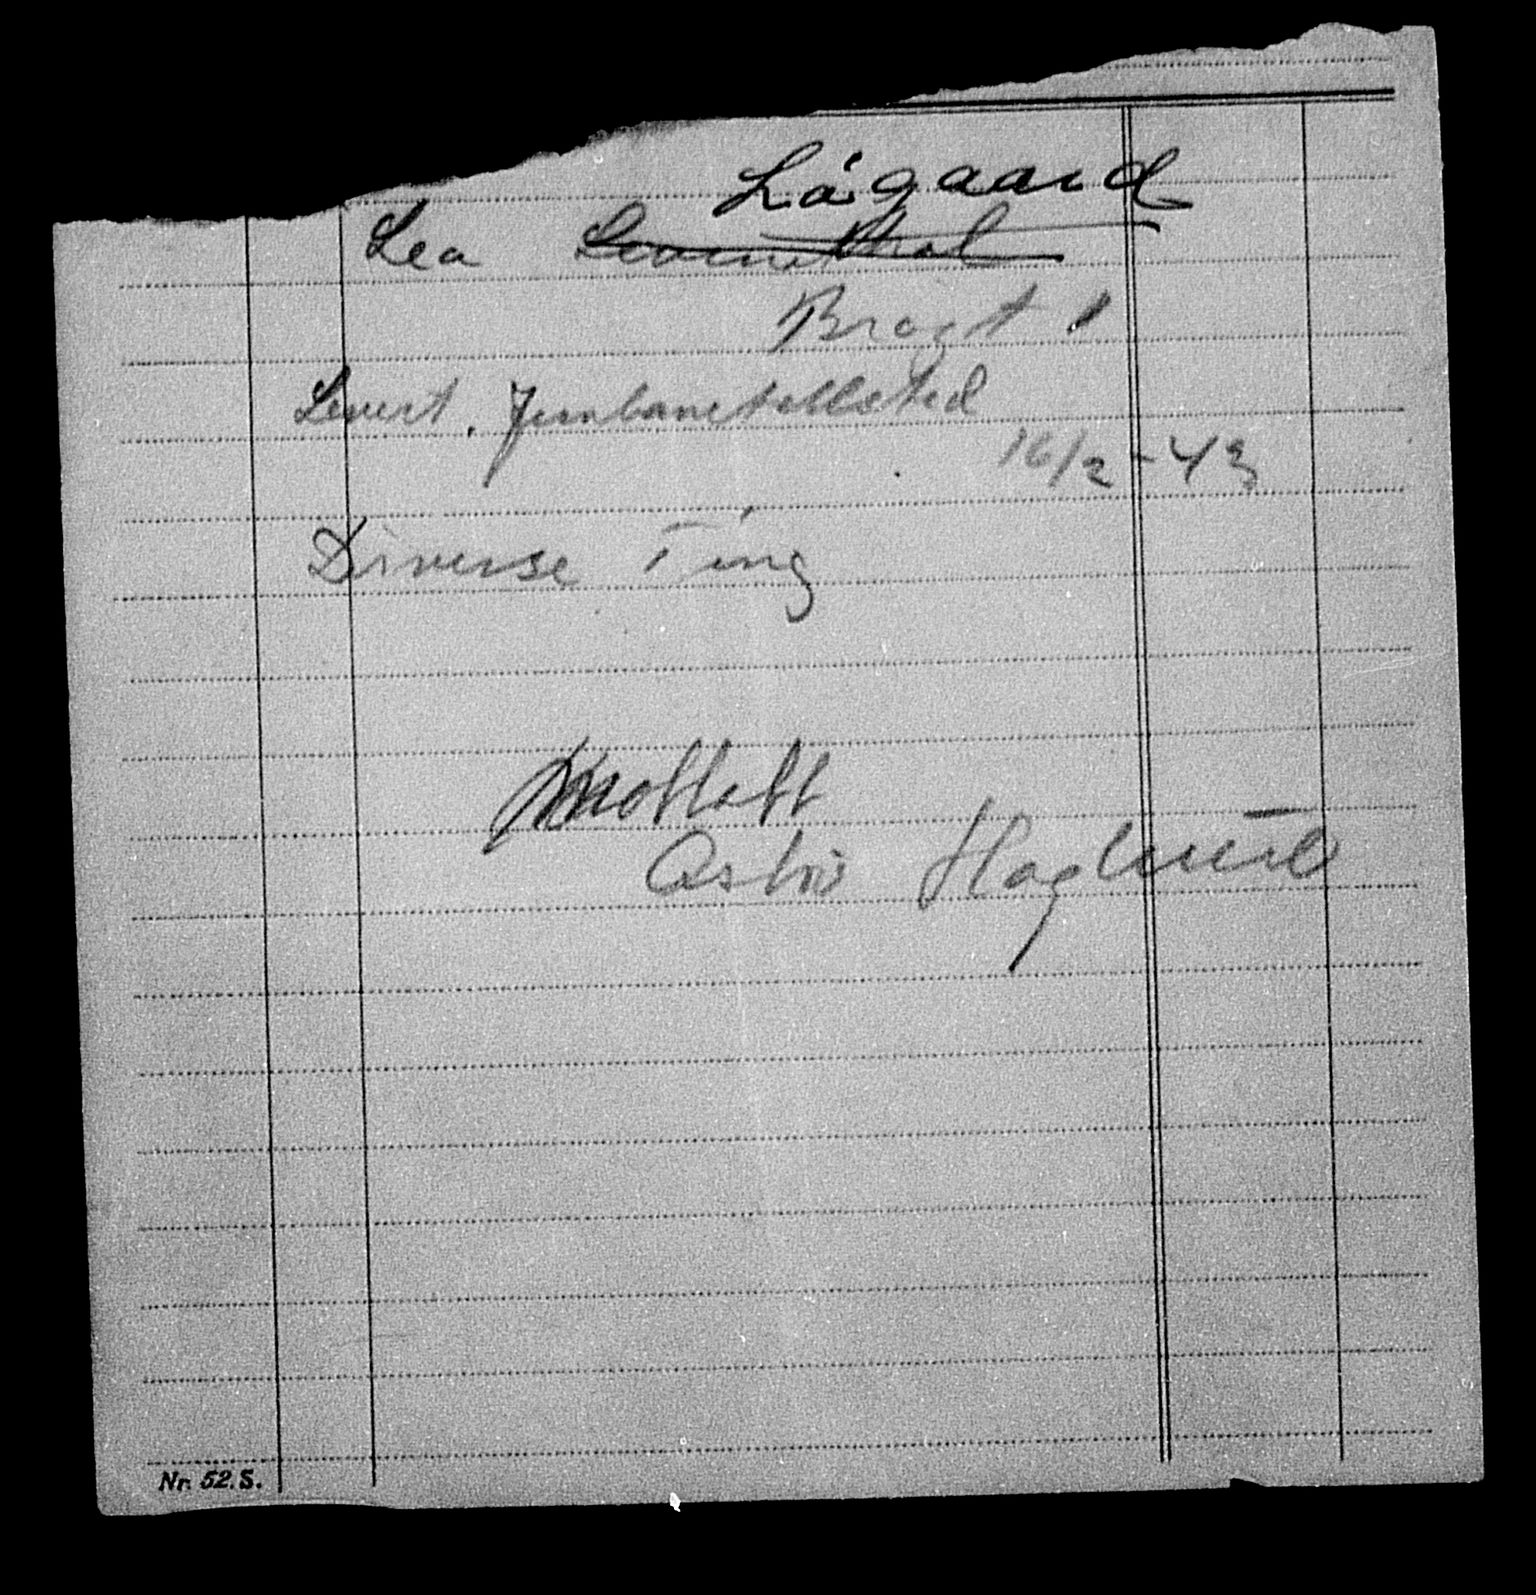 Lágaard
Lea
Bragt 1
Levert. Jernbanetollsted
16/2-43
Diverse Ting
Mottatt
Haglund
Nr. 52. S.